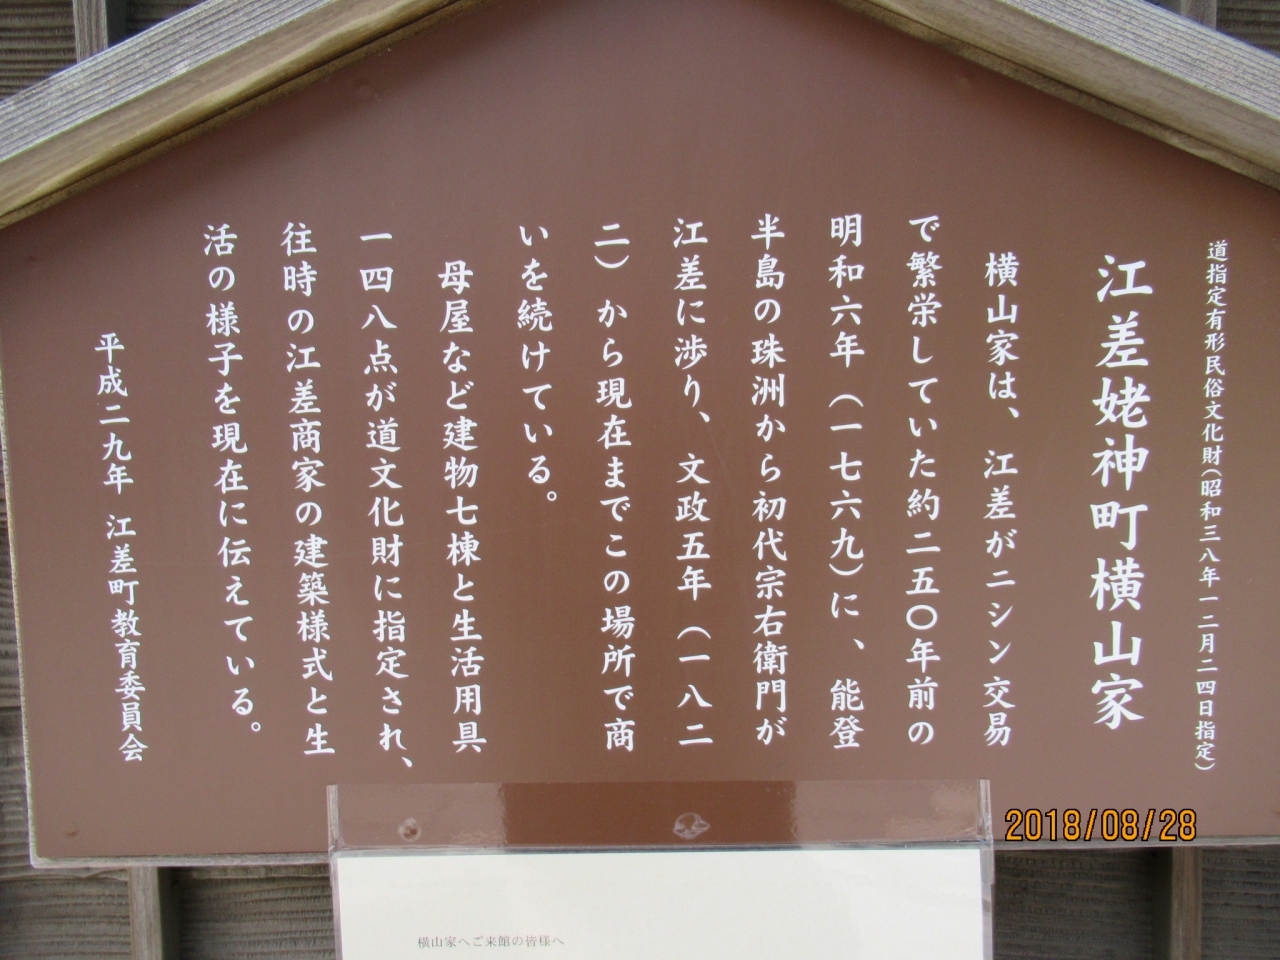 道指定有形民俗文化財(昭和三八年一二月二四日指定)
江差姥神町横山家
横山家は、江差がニシン交易
で繁栄していた約二五〇年前の
明和六年(一七六九)に、能登
半島の珠洲から初代宗右衛門が
江差に渉り、文政五年(一八二
二)から現在までこの場所で商
いを続けている。
母屋など建物七棟と生活用具
一四八点が道文化財に指定され、
往時の江差商家の建築様式と生
活の様子を現在に伝えている。
平成二九年 江差町教育委員会
横山家へご来館の皆様へ
2018/08/28